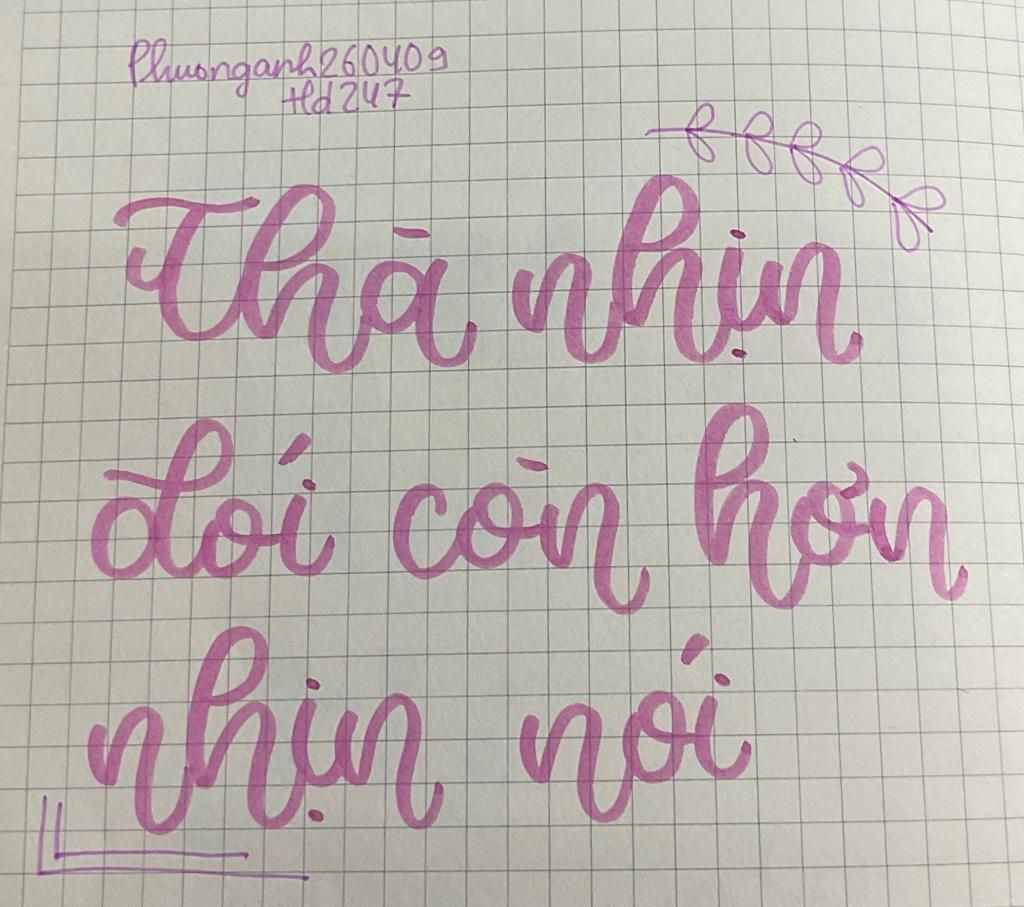 Phuonganh260409
tld247
Thà nhịn
đói còn hơn
nhịn nói